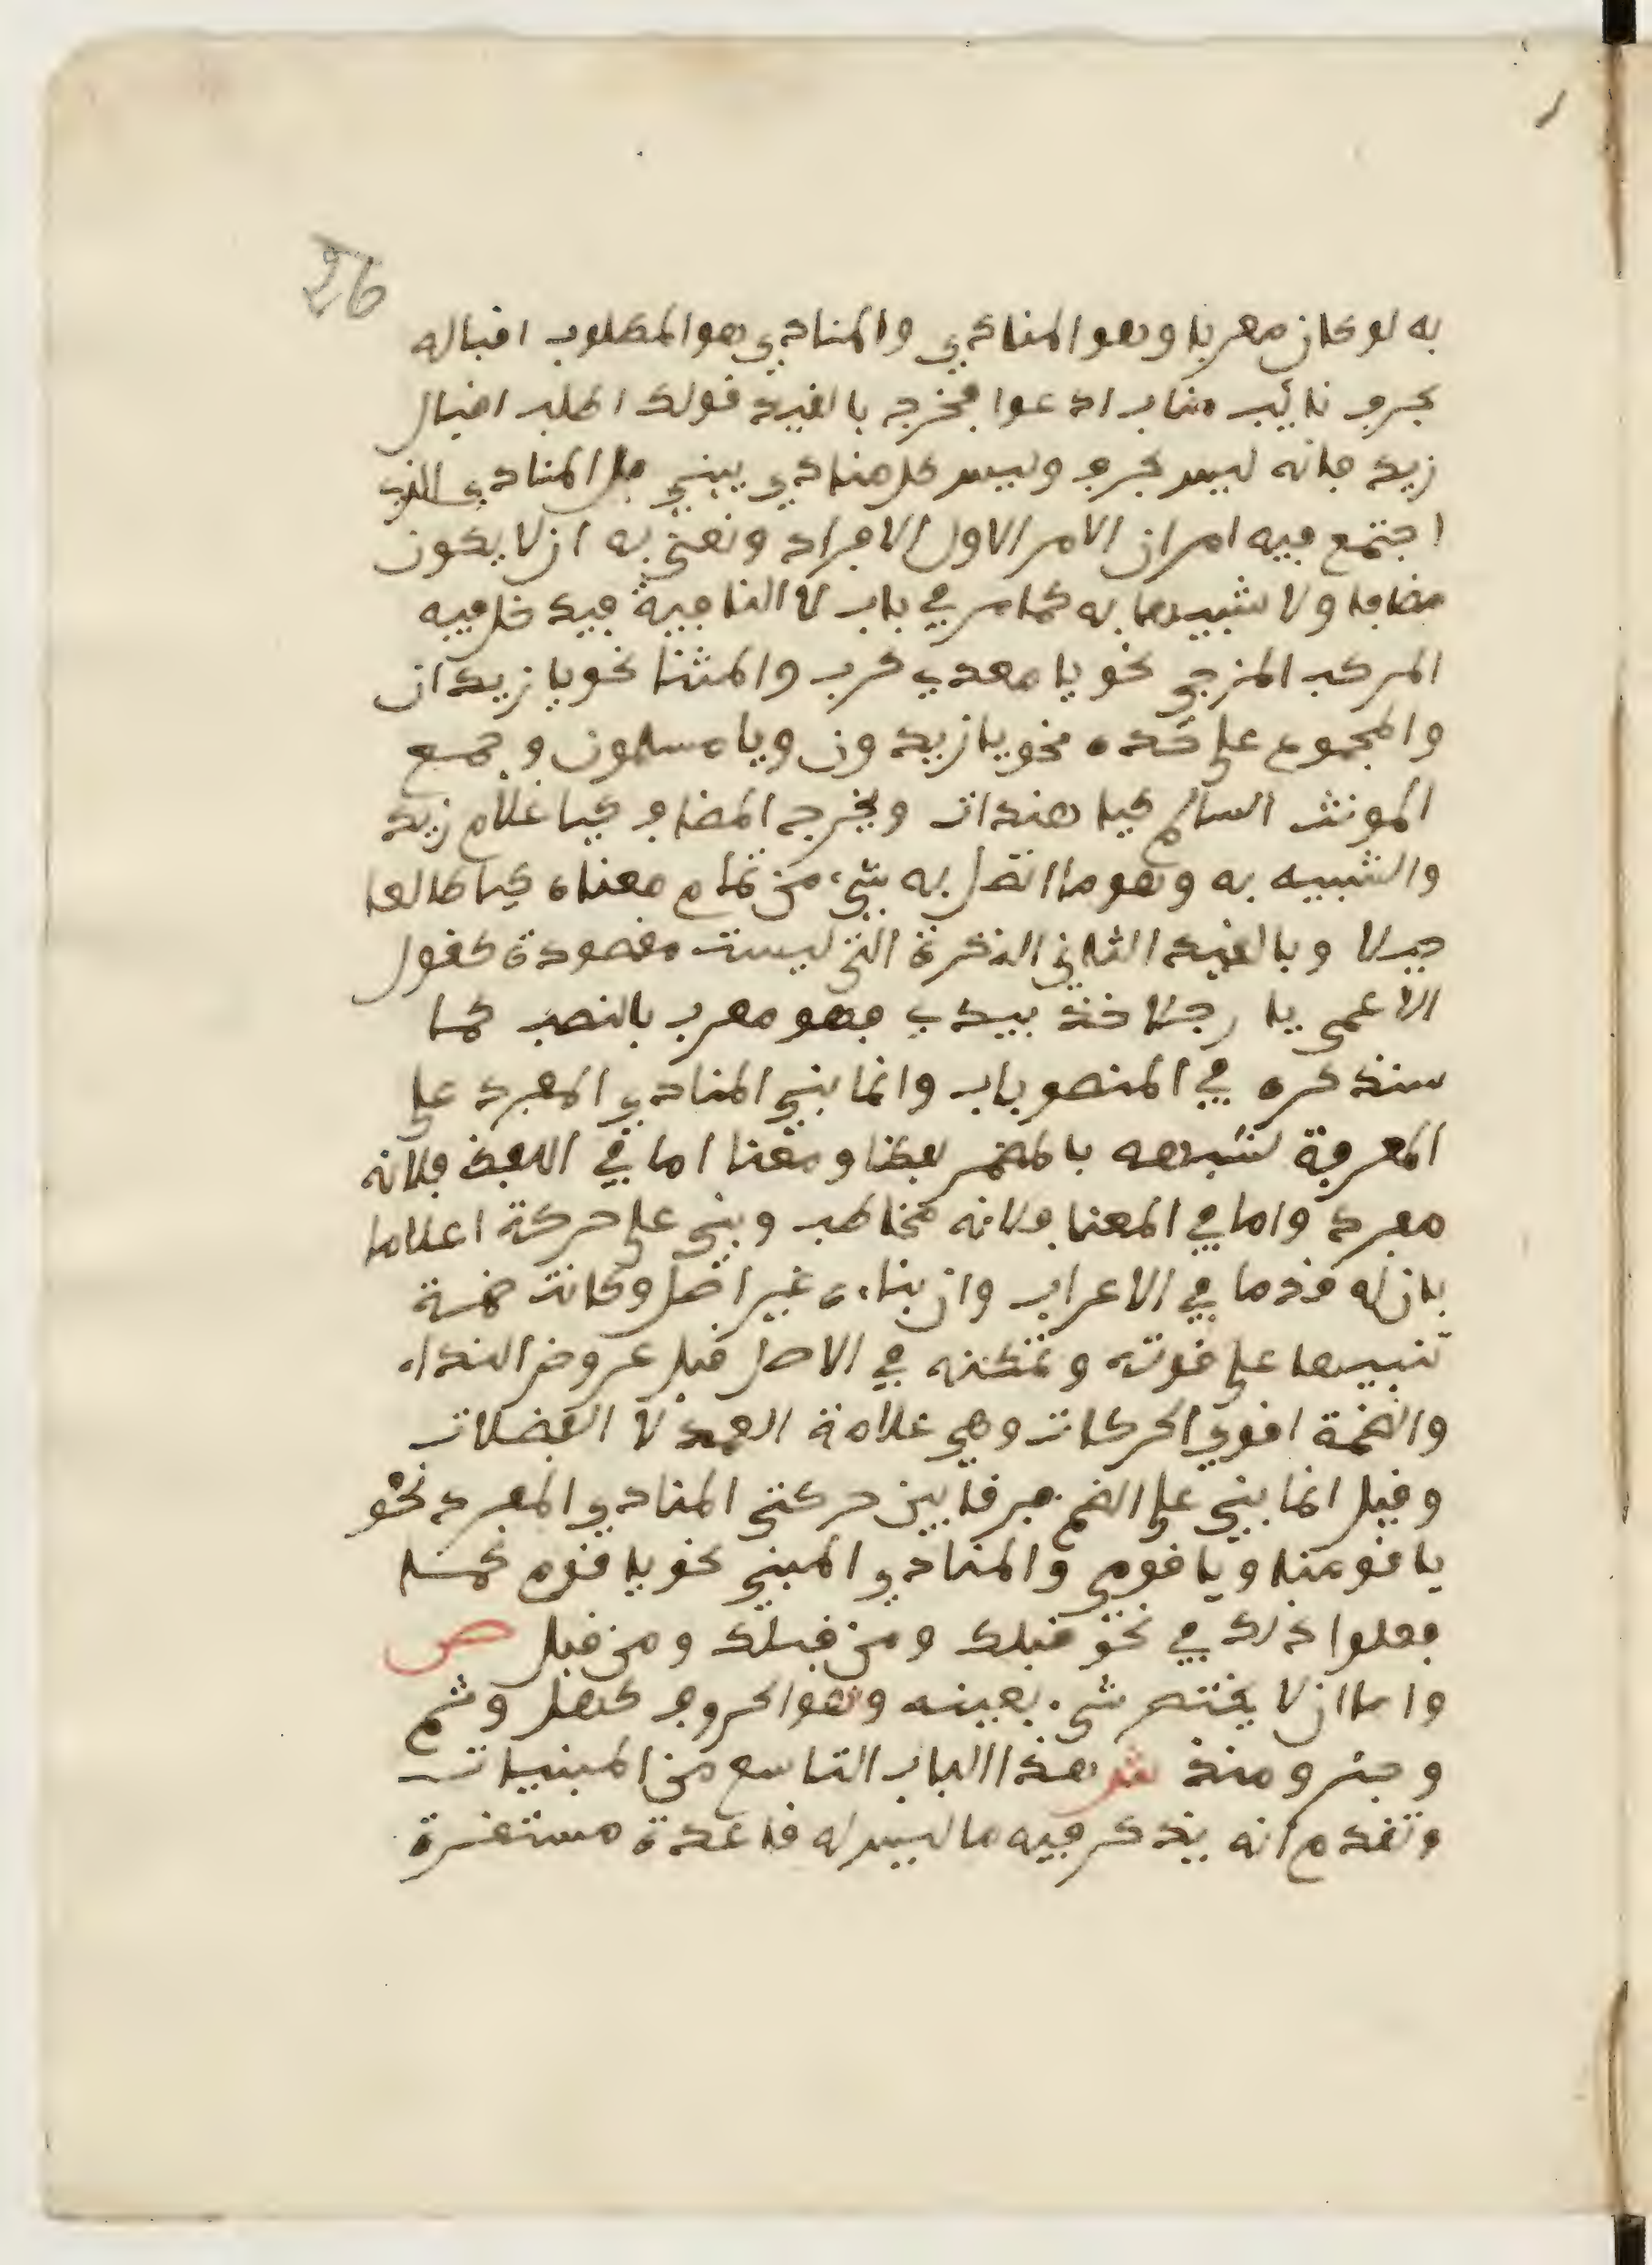 26
به لو كان معربا وهو المنادي والمنادي هو المطلوب اقباله
بحرف نائب مناب ادعوا فخرج بالقيد قولك اطلب اقبال
زيد فانه ليس بحرف وليس كل منادي يبني بل المنادي الذي
اجتمع فيه امران الامر الاول الافراد ونعني به ان لا يكون
مضافا ولا شبيها به كما مر في باب لا النافية فيدخل فيه
المركب المزجي نحو يا معدي كرب والمثنا نحو يا زيدان
والمجموع على حده نحو يا زيدون ويا مسلمون وجمع
المونث السالم كيا هندات ويخرج المضاف كيا غلام زيد
والشبيه به وهو ما اتصل به شيء من تمام معناه كيا طالعا
جبلا وبالقيد الثاني النكرة التي ليست مقصودة كقول
الاعمى يا رجلا خذ بيدي فهو معرب بالنصب كما
سنذكره في المنصوبات وانما بني المنادي المفرد على
المعرفة لشبهه بالمضمر لفظا ومعنا اما في اللفظ فلانه
مفرد واما في المعنا فلانه مخاطب وبني على حركة اعلاما
بان له قدما في الاعراب وان بناءه غير اصل وكانت ضمة
تنبيها على قوته وتمكنه في الاصل قبل عروض النداء
والضمة اقوي الحركات وهي علامة العمد لا الفضلات
وقيل انما بني على الضم فرقا بين حركتي المنادي المعرب نحو
يا قومنا ويا قومي والمنادي المبني نحو يا قوم كما
فعلوا ذلك في نحو قبلك ومن قبلك ومن قبل ص
واما ان لا يختص شيء بعينه وهو الحروف كهل وثم
وجير ومنذ ش هذا الباب التاسع من المبنيات
وتقدم انه يذكر فيه ما ليس له قاعدة مستقرة